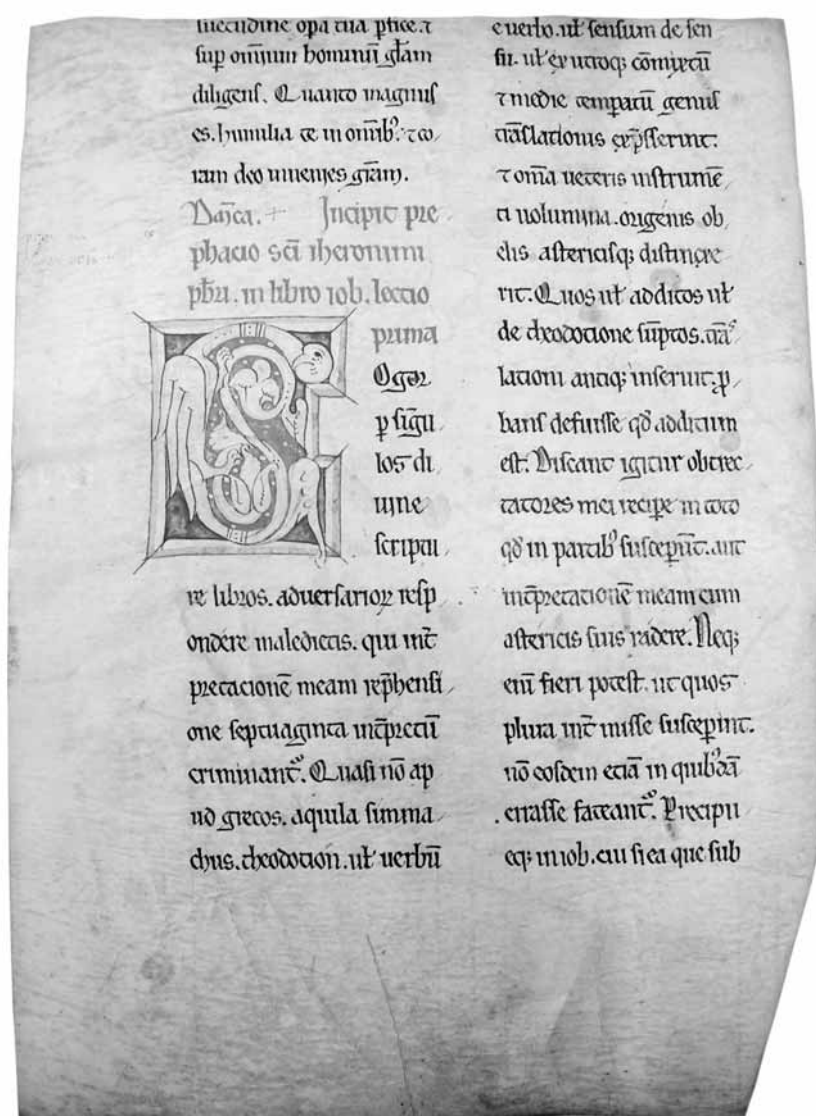 suetudine opa tua ꝑfice. ⁊
suꝑ om̄ium hominū głam
diligens. Quanto magnus
es. humilia te in om̄ib᷒. ⁊ co
ram deo inuenies gr̄am.
Incipit pre
phacio sc̄i iheronimi
pb̄ri. in libro iob. lectio
prima
Ogor
ꝑ sigu
los di
uine
scriptu
re libros. aduersarioꝝ resp
ondere maledictis. qui int̄
pretacionē meam rep̄hensi
one septuaginta int̄pretū
criminant᷒. Quasi nō ap
ud grecos. aquila simma
chus. theodotion. ul̄ uerbū
e uerbo. ul̄ sensum de sen
su. ul̄ ex utroq; cōmixtū
⁊ medie temperatū genus
trāslationis exp̄sserint.
⁊ om̄a ueteris instrumē
ti uolumina. origenis ob
elis astericisq; distinxe
rit. Quos ul̄ additos ul̄
de theodotione sūptos. trās
lationi antiq; inseruit. ꝓ
bans defuisse qđ additum
est. Discant igitur obtrec
tatores mei recipe in toto
qđ in partib᷒ susceper̄t. aut
int̄pretationē meam cum
astericis suis radere. Neq;
enī fieri potest. ut quos
plura int̄misisse susceꝑint.
nō eosdem etiā in quib᷒dā
errasse fateant᷒. Precipu
eq; in iob. cui si ea que sub